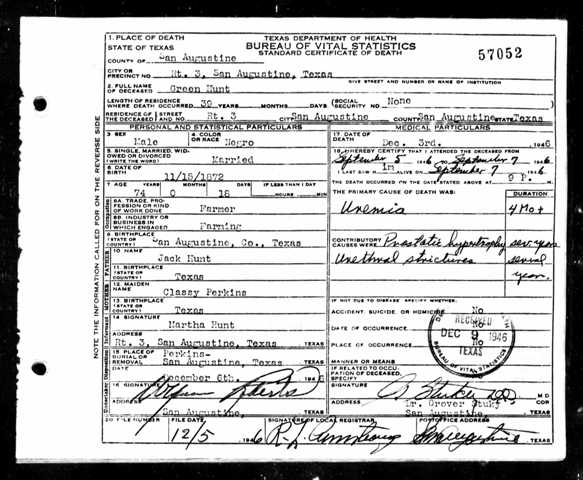 TEXAS DEPARTMENT OF HEALTH
BUREAU OF VITAL STATISTICS
STANDARD CERTIFICATE OF DEATH
57052
1. PLACE OF DEATH
STATE OF TEXAS
COUNTY OF San Augustine
CITY OR PRECINCT NO. Rt. 3, San Augustine, Texas
GIVE STREET AND NUMBER OR NAME OF INSTITUTION
2. FULL NAME OF DECEASED Green Hunt
LENGTH OF RESIDENCE WHERE DEATH OCCURRED 30 YEARS MONTHS DAYS
SOCIAL SECURITY NO. None
RESIDENCE OF THE DECEASED STREET AND NO. Rt. 3 CITY San Augustine COUNTY San Augustine STATE Texas
PERSONAL AND STATISTICAL PARTICULARS
3 SEX Male
4 COLOR OR RACE Negro
5 SINGLE, MARRIED, WIDOWED OR DIVORCED (WRITE THE WORD) Married
6 DATE OF BIRTH 11/15/1872
7 AGE 74 YEARS 0 MONTHS 18 DAYS IF LESS THAN 1 DAY HOURS MIN.
8A. TRADE, PROFESSION OR KIND OF WORK DONE Farmer
8B. INDUSTRY OR BUSINESS IN WHICH ENGAGED Farming
9 BIRTHPLACE (STATE OR COUNTRY) San Augustine, Co., Texas
10 NAME Jack Hunt
11 BIRTHPLACE (STATE OR COUNTRY) Texas
12 MAIDEN NAME Classy Perkins
13 BIRTHPLACE (STATE OR COUNTRY) Texas
14 SIGNATURE Martha Hunt
ADDRESS Rt. 3, San Augustine, Texas TEXAS
15 PLACE OF BURIAL OR REMOVAL Perkins-
San Augustine, Texas TEXAS
DATE December 6th. 194
16 SIGNATURE
ADDRESS San Augustine, TEXAS
20 FILE NUMBER FILE DATE 12/5 1946
SIGNATURE OF LOCAL REGISTRAR R. L. Armstrong
POSTOFFICE ADDRESS San Augustine TEXAS
MEDICAL PARTICULARS
17 DATE OF DEATH Dec. 3rd. 1946
18 I HEREBY CERTIFY THAT I ATTENDED THE DECEASED FROM
September 5 1946 TO September 7 1946
I LAST SAW HIM ALIVE ON September 7 1946
THE DEATH OCCURRED ON THE DATE STATED ABOVE AT 9 P. M
THE PRIMARY CAUSE OF DEATH WAS: DURATION
Uremia 4 Mo+
CONTRIBUTORY CAUSES WERE: Prostatic hypertrophy
Urethral strictures several
years
IF NOT DUE TO DISEASE SPECIFY WHETHER:
ACCIDENT, SUICIDE OR HOMICIDE No
DATE OF OCCURRENCE No
PLACE OF OCCURRENCE No
MANNER OR MEANS
IF RELATED TO OCCUPATION OF DECEASED, SPECIFY
SIGNATURE M D
ADDRESS Dr. Grover Stuky
San Augustine, TEXAS
RECORDED
DEC 9 1946
TEXAS
BUREAU OF VITAL STATISTICS
NOTE THE INFORMATION CALLED FOR ON THE REVERSE SIDE
FATHER
MOTHER